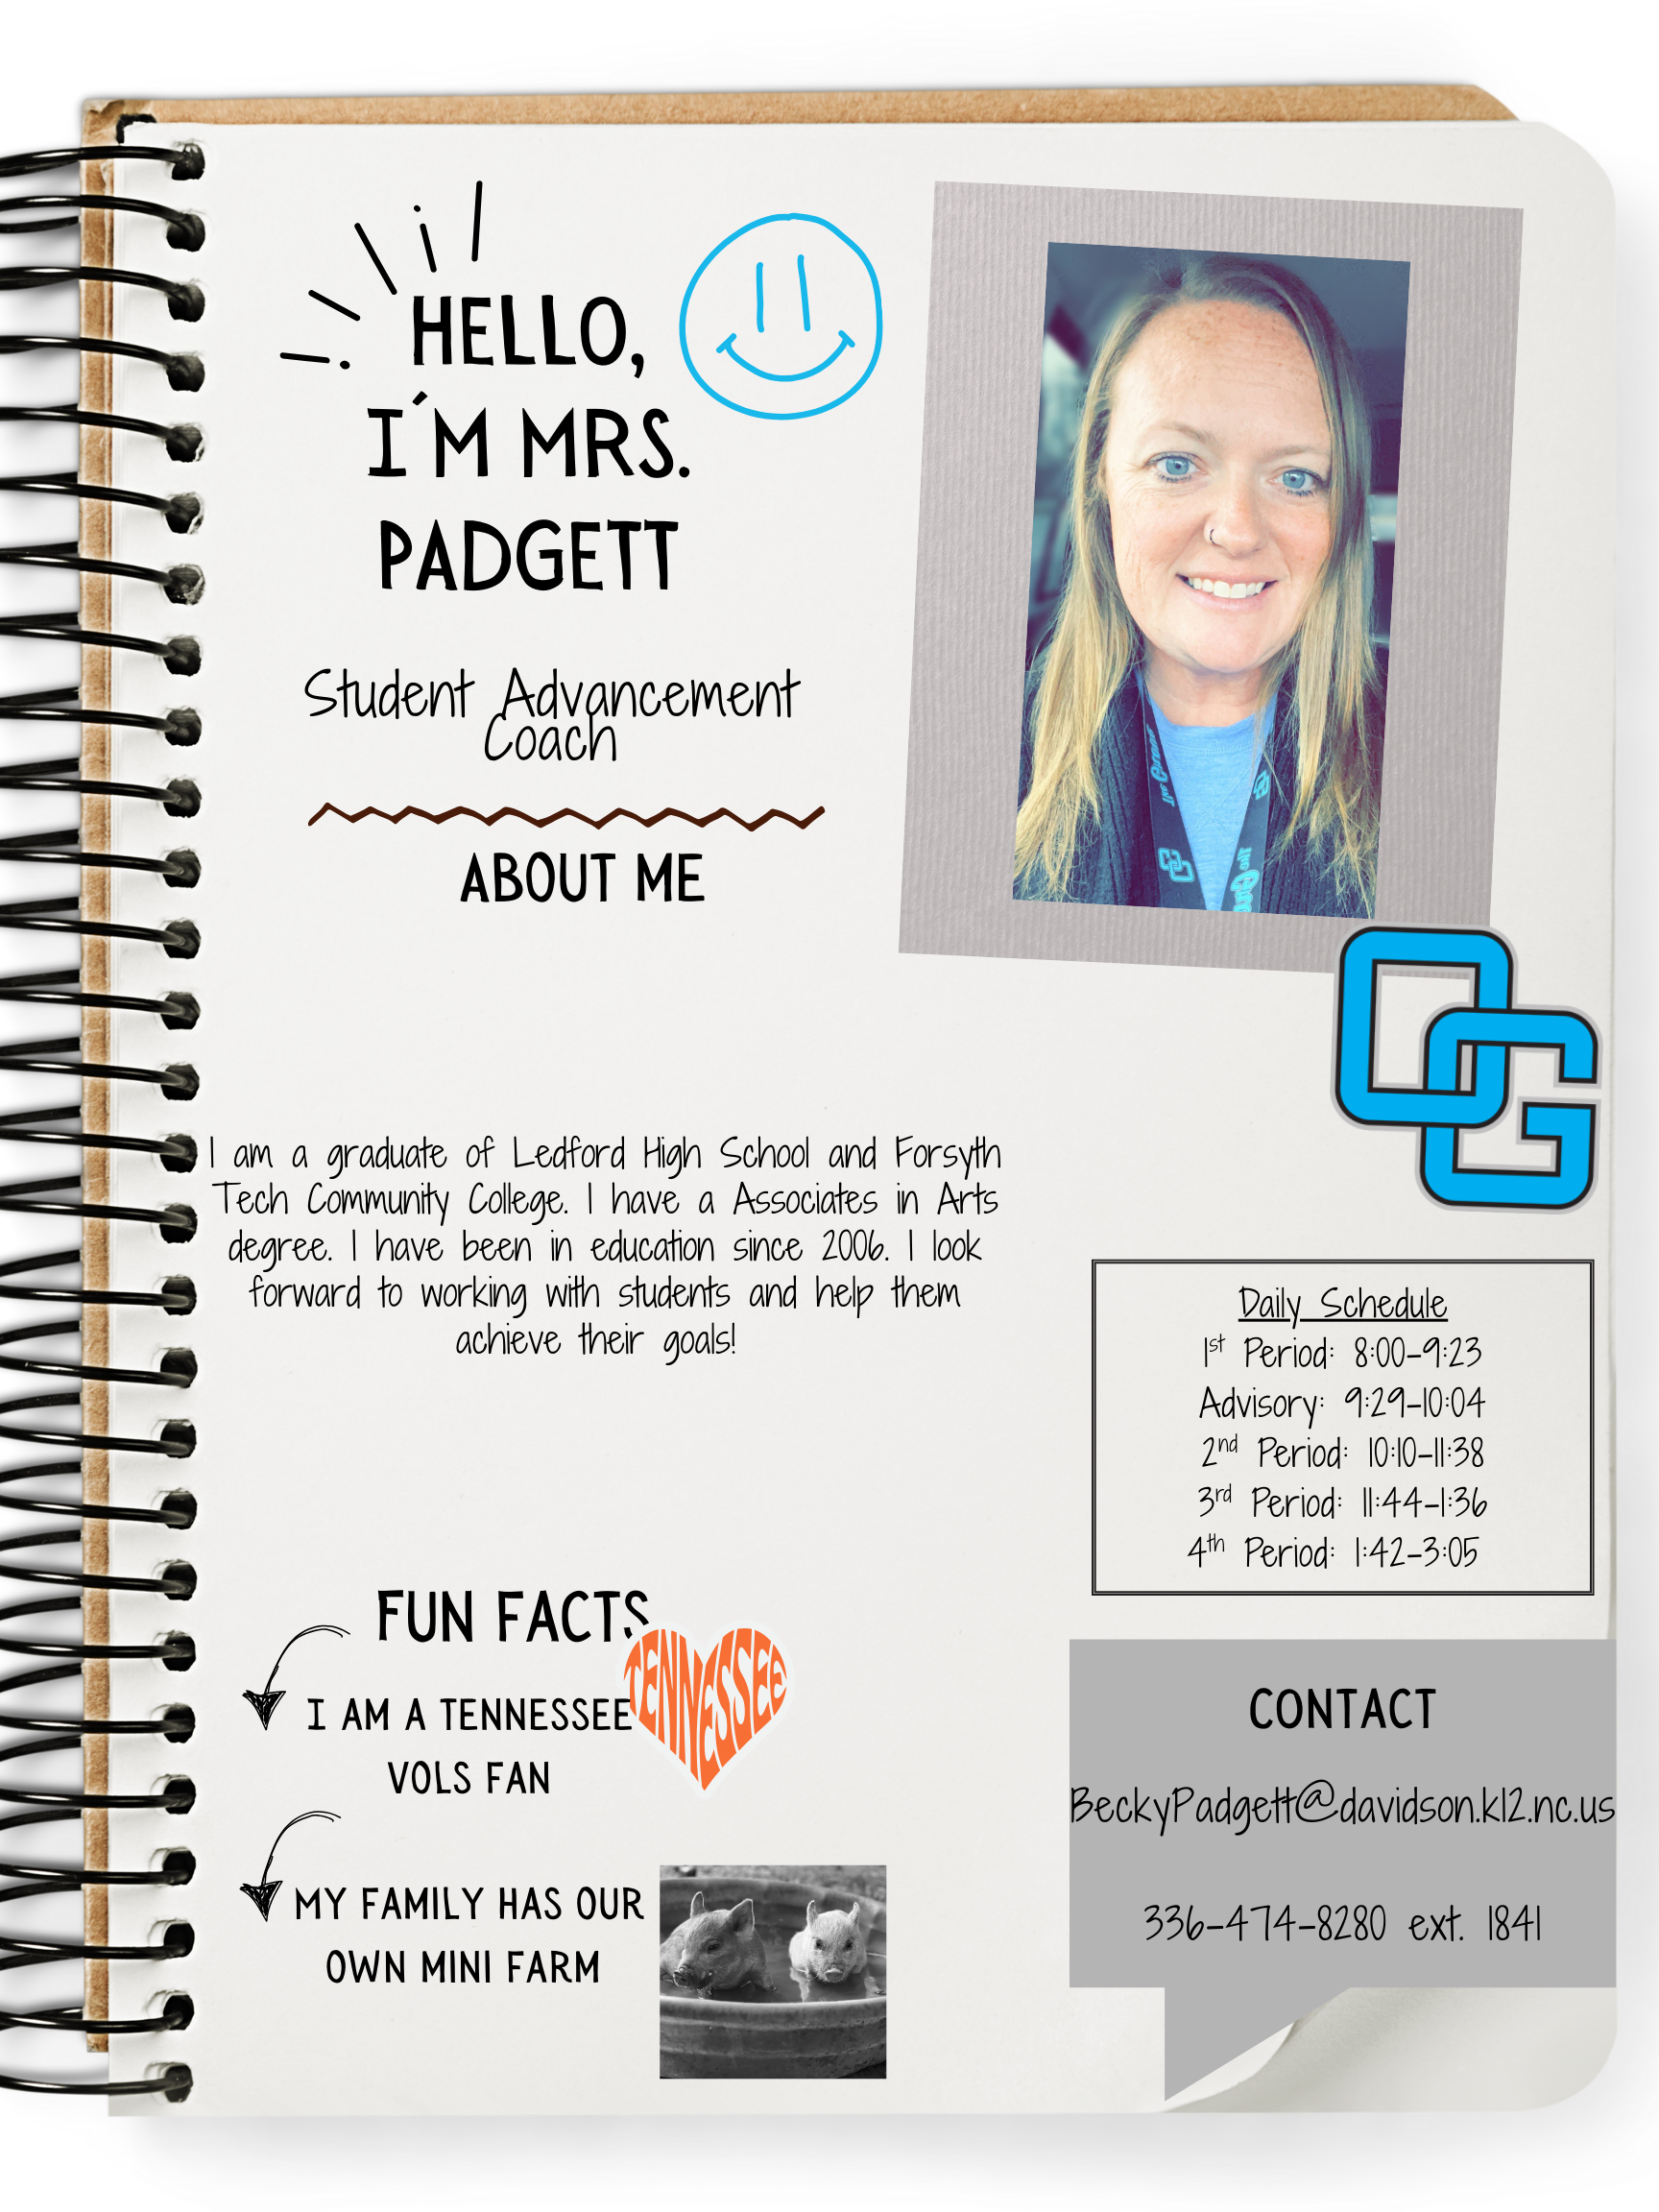 HELLO,
I´M MRS.
PADGETT
Student Advancement
Coach
ABOUT ME
I am a graduate of Ledford High School and Forsyth
Tech Community College. I have a Associates in Arts
degree. I have been in education since 2006. I look
forward to working with students and help them
achieve their goals!
OG
Daily Schedule
1st Period: 8:00-9:23
Advisory: 9:29-10:04
2nd Period: 10:10-11:38
3rd Period: 11:44-1:36
4th Period: 1:42-3:05
FUN FACTS
TENNESSEE
I AM A TENNESSEE
VOLS FAN
MY FAMILY HAS OUR
OWN MINI FARM
CONTACT
BeckyPadgett@davidson.k12.nc.us
336-474-8280 ext. 1841